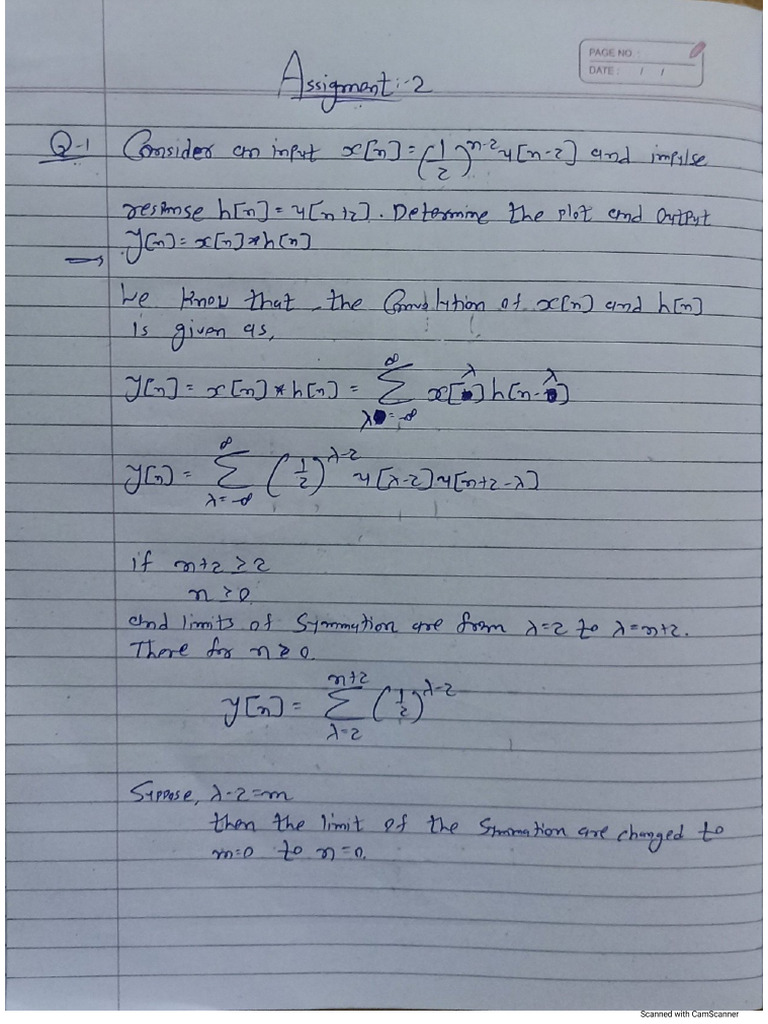 PAGE NO. :
DATE : / /
Assigment:-2
Q-1 Consider an input x[n]=(1/2)^n-2 u[n-2] and implse
response h[n]=u[n+2]. Determine the plot and output
y[n]=x[n]*h[n]
→ We know that the Convolution of x[n] and h[n]
is given as,
y[n]=x[n]*h[n]=∑_{λ=-∞}^{∞} x[λ]h[n-λ]
y[n]=∑_{λ=-∞}^{∞} (1/2)^{λ-2} u[λ-2]u[n+2-λ]
if n+2≥2
n≥0
and limits of Summation are from λ=2 to λ=n+2.
There for n≥0.
y[n]=∑_{λ=2}^{n+2} (1/2)^{λ-2}
Suppose, λ-2=m
then the limit of the Smmation are changed to
m=0 to n=0.
Scanned with CamScanner